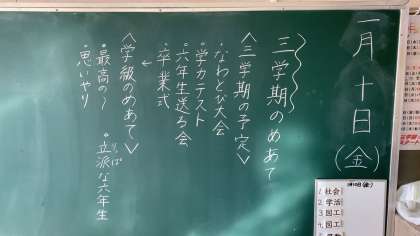 一月十日(金)
三学期のめあて
＜三学期の予定＞
・なわとび大会
・学力テスト
・六年生送る会
・卒業式
↓
＜学級のめあて＞
・最高の～ ・立派な六年生
りっぱ
・思いやり
1月10日(金)
1. 社会
2. 学活
3. 国工
4. 図工